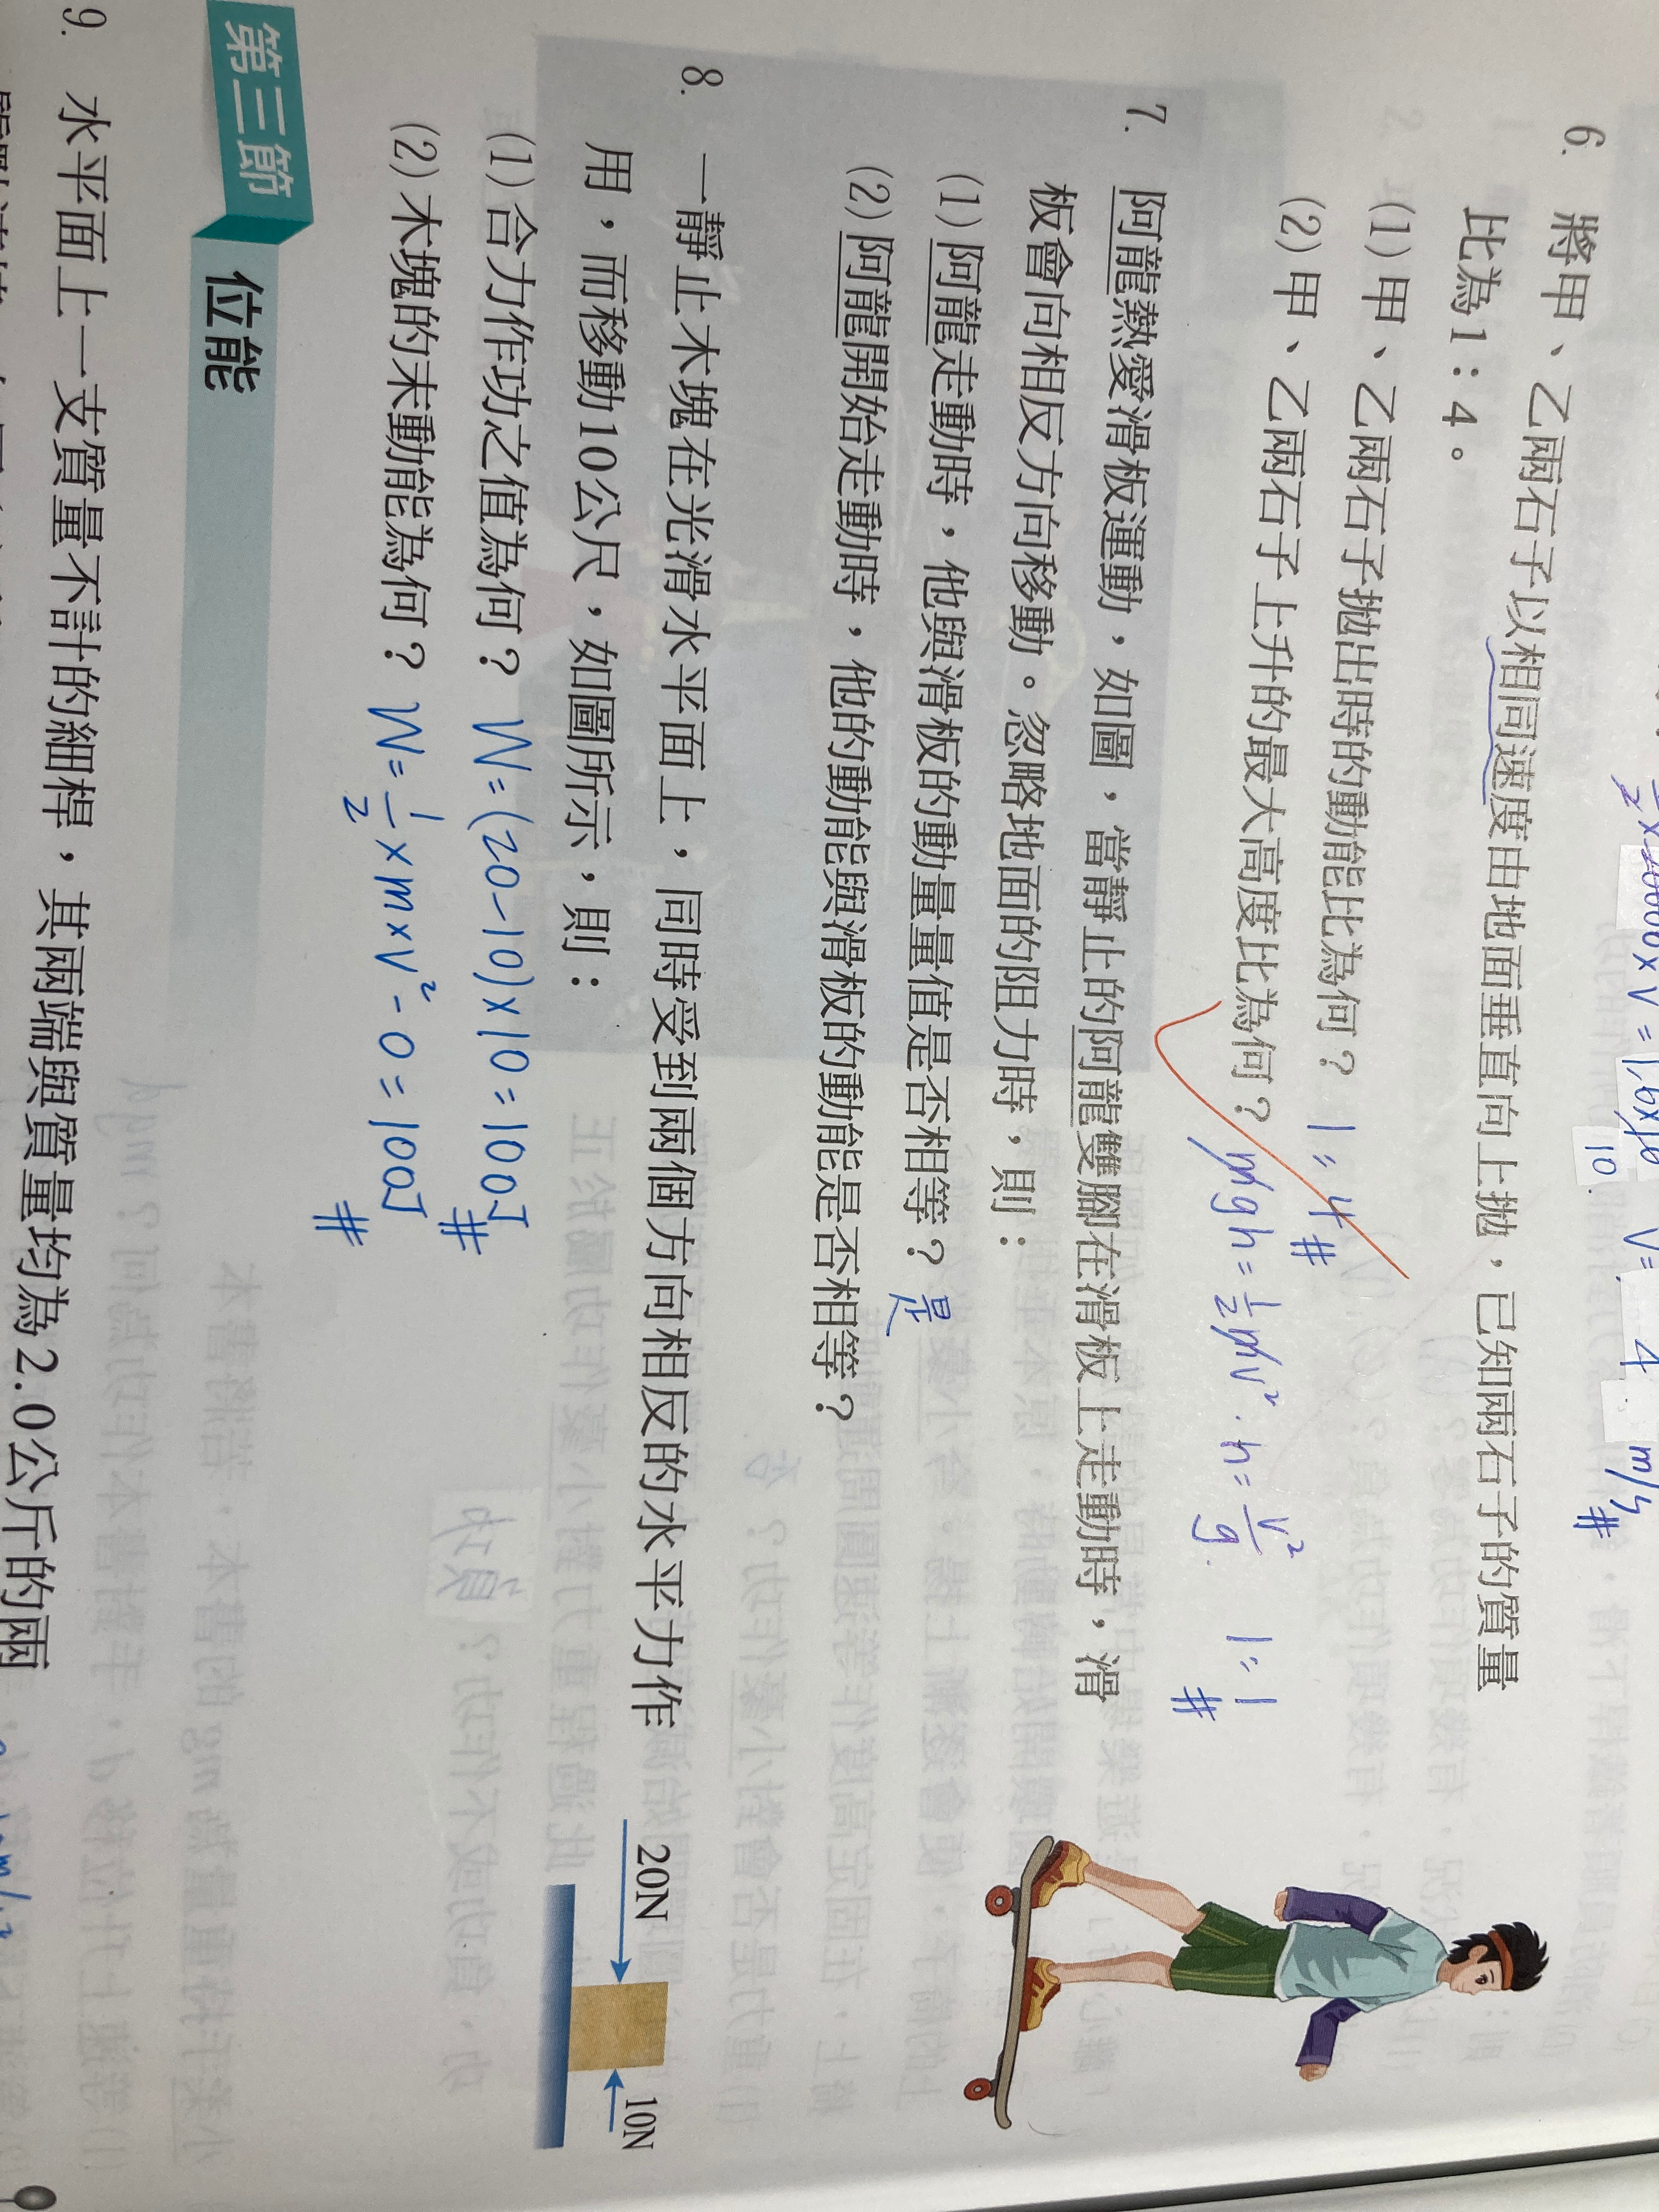 ½×20000×V=1.6×10
10.
V= 4 m/s #
6. 將甲、乙兩石子以相同速度由地面垂直向上拋，已知兩石子的質量
比為1：4。
(1)甲、乙兩石子拋出時的動能比為何？ 1=4 #
(2)甲、乙兩石子上升的最大高度比為何？ mgh=½mv². h=v²/g. 1=1 #
7. 阿龍熱愛滑板運動，如圖，當靜止的阿龍雙腳在滑板上走動時，滑
板會向相反方向移動。忽略地面的阻力時，則：
(1)阿龍走動時，他與滑板的動量量值是否相等？ 是
(2)阿龍開始走動時，他的動能與滑板的動能是否相等？
8. 一靜止木塊在光滑水平面上，同時受到兩個方向相反的水平力作
用，而移動10公尺，如圖所示，則：
20N
10N
(1)合力作功之值為何？ W=(20-10)×10=100J #
(2)木塊的末動能為何？ W=½×m×v²-0=100J #
第三節 位能
9. 水平面上一支質量不計的細桿，其兩端與質量均為2.0公斤的兩